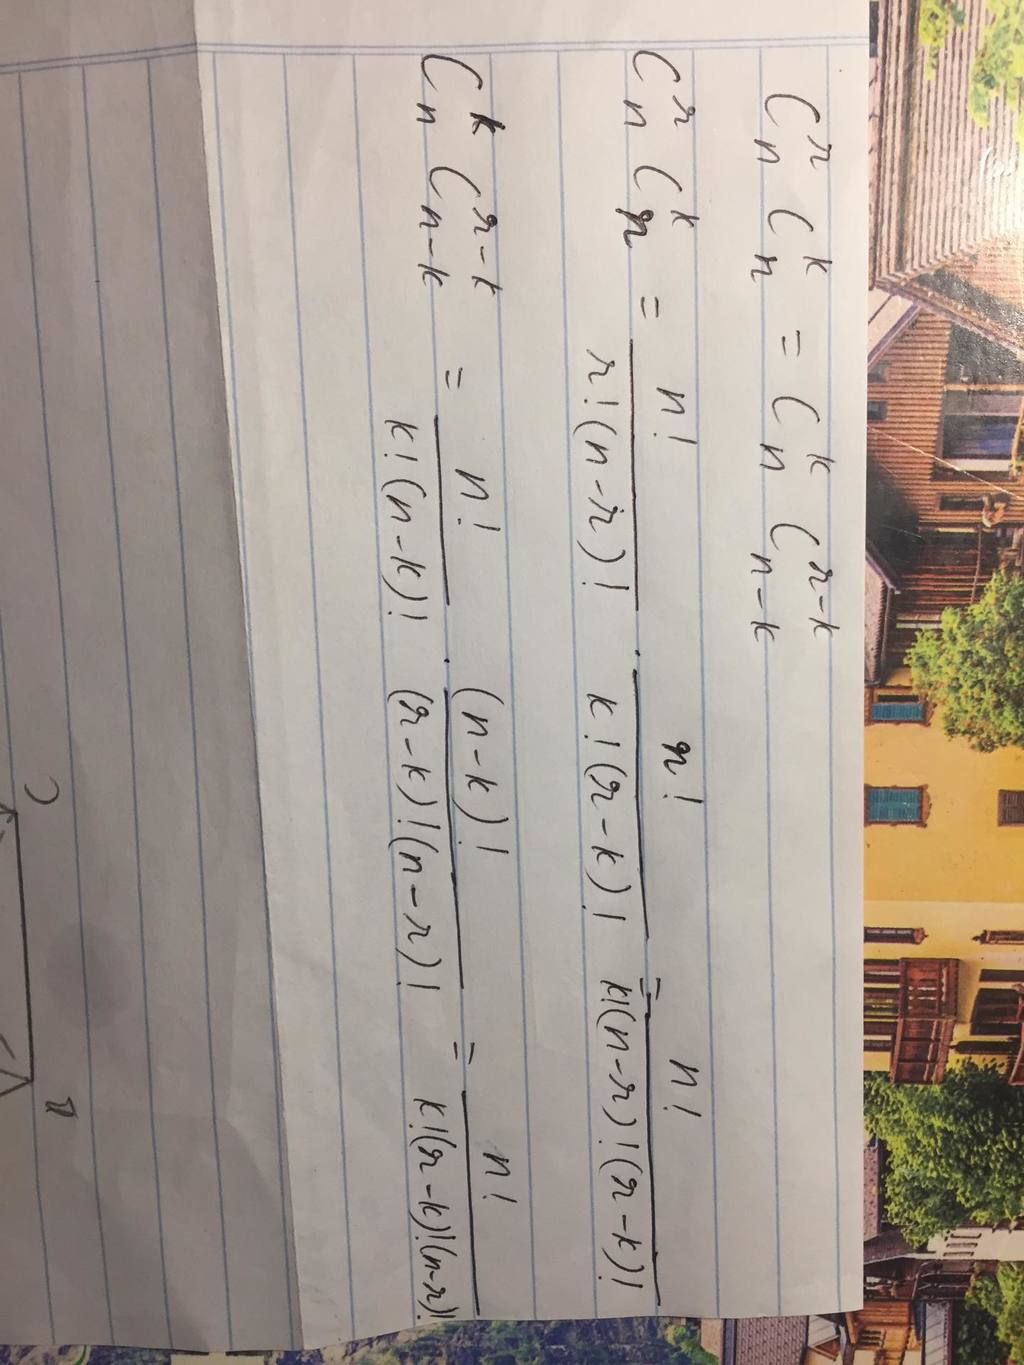 C_n^r C_n^k = C_n^k C_{n-k}^{r-k}
C_n^r C_r^k = \frac{n!}{r!(n-r)!} \cdot \frac{r!}{k!(r-k)!} = \frac{n!}{k!(n-r)!(r-k)!}
C_n^k C_{n-k}^{r-k} = \frac{n!}{k!(n-k)!} \cdot \frac{(n-k)!}{(r-k)!(n-r)!} = \frac{n!}{k!(r-k)!(n-r)!}
C D